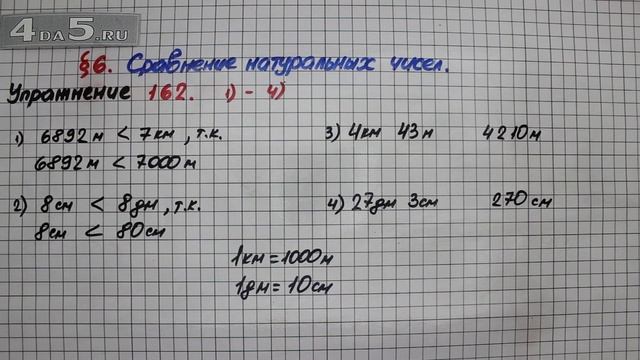 4DA5.RU
§6. Сравнение натуральных чисел.
Упражнение 162. 1) - 4)
1) 6892м < 7км, т.к.
6892м < 7000м
2) 8см < 8дм, т.к.
8см < 80см
3) 4км 43м 4210м
4) 27дм 3см 270см
1км = 1000м
1дм = 10см